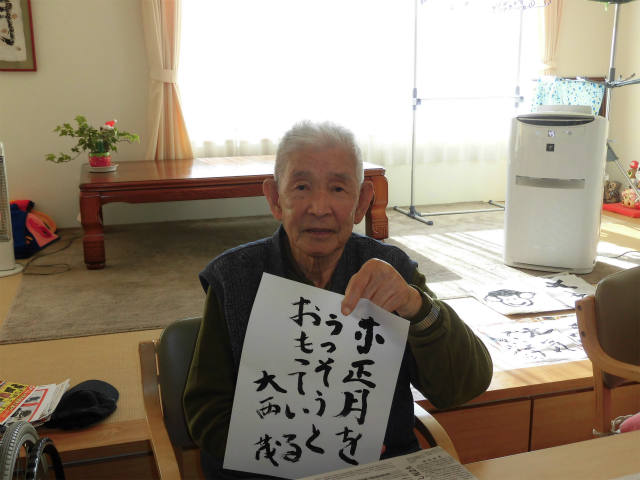 正月を
うっそうと
おもっている
大西 茂